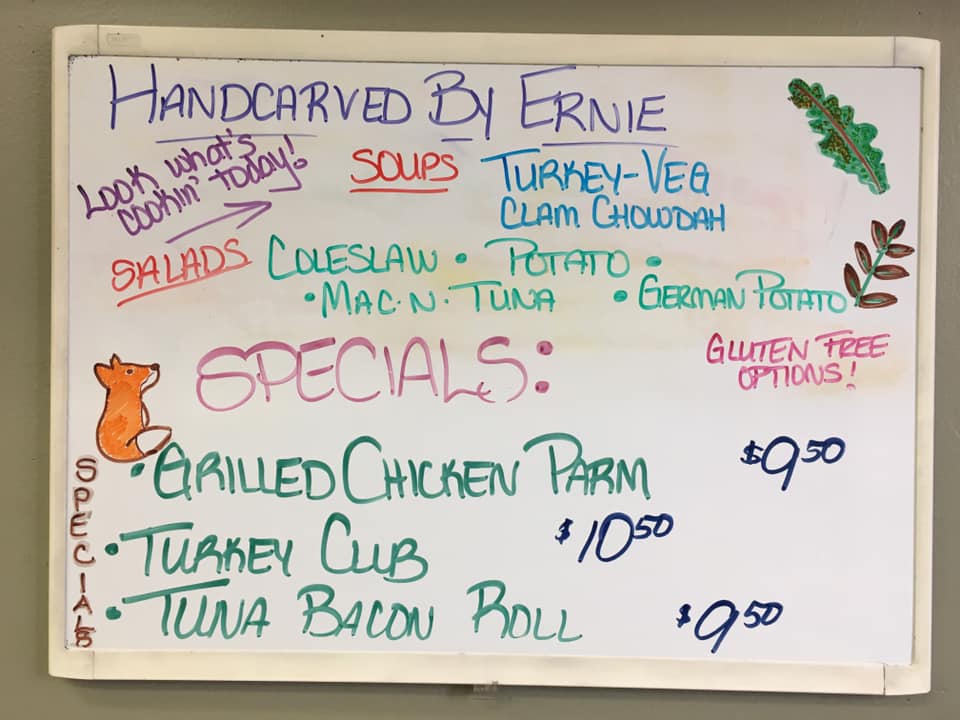 HANDCARVED BY ERNIE
Look what's
cookin' today!
SOUPS TURKEY-VEG
CLAM CHOWDAH
SALADS COLESLAW • POTATO •
• MAC·N·TUNA • GERMAN POTATO
SPECIALS:
GLUTEN FREE
OPTIONS!
SPECIALS
• GRILLED CHICKEN PARM $9.50
• TURKEY CLUB $10.50
• TUNA BACON ROLL $9.50